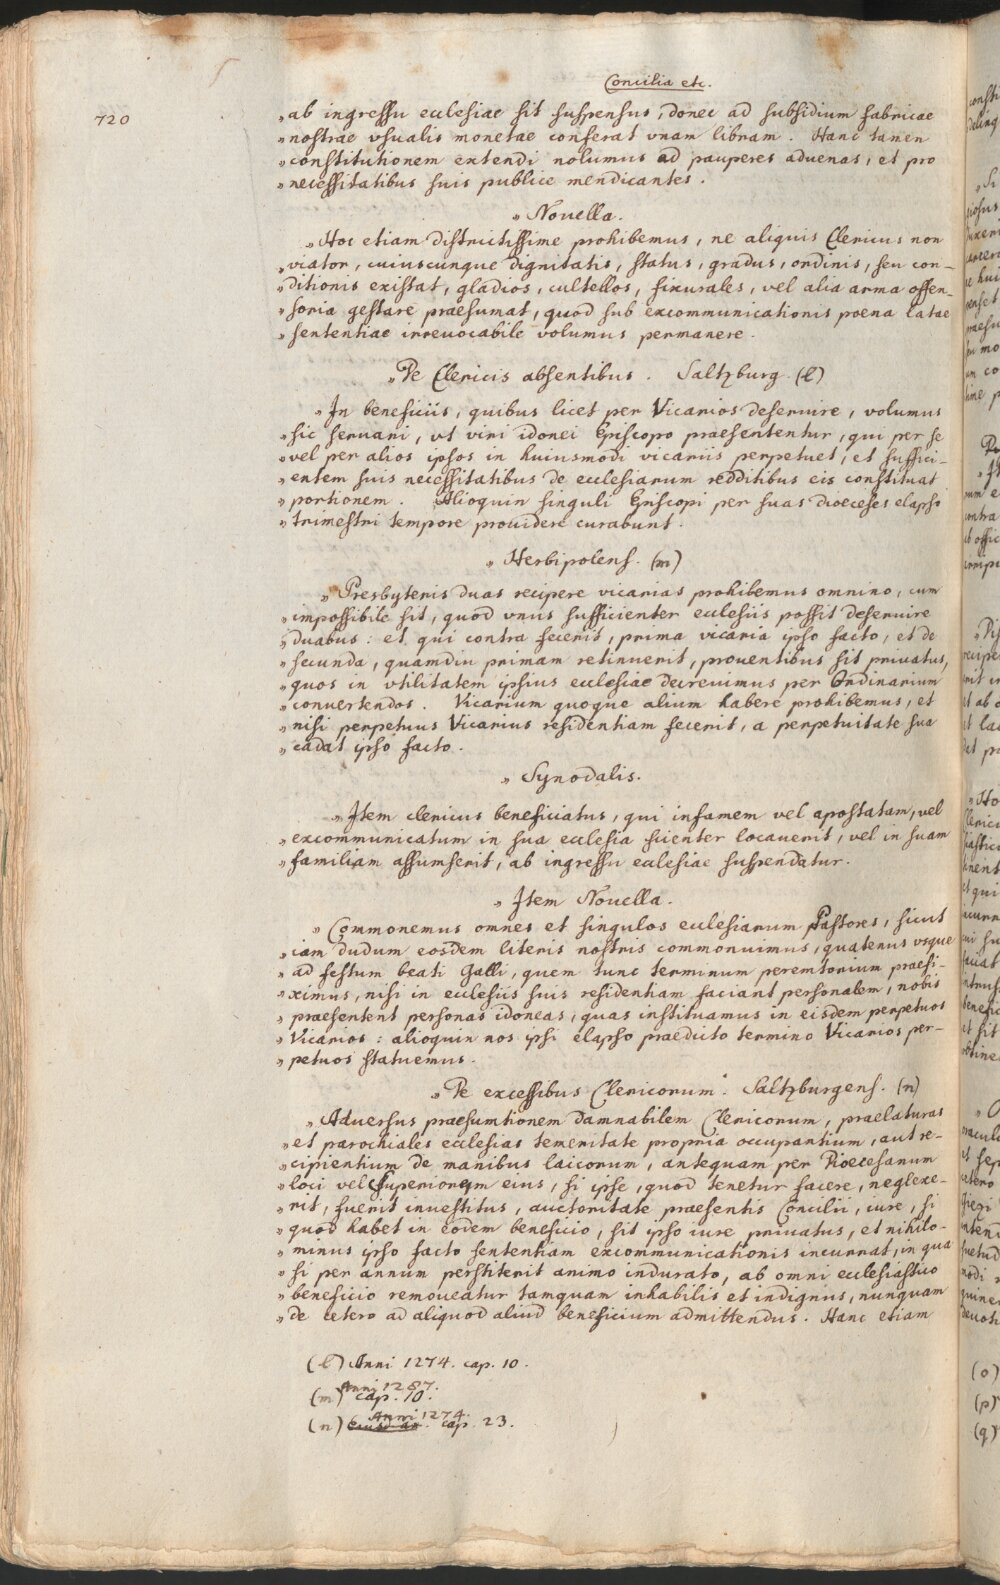 Concilia etc.
720
„ab ingressu ecclesiae sit suspensus, donec ad subsidium fabricae
„nostrae vsualis monetae conferat vnam libram. Hanc tamen
„constitutionem extendi nolumus ad pauperes aduenas, et pro
„necessitatibus suis publice mendicantes.
„Nouella.
„Hoc etiam districtissime prohibemus, ne aliquis Clericus non
„viator, cuiuscunque dignitatis, status, gradus, ordinis, seu con-
„ditionis existat, gladios, cultellos, sixurales, vel alia arma offen-
„soria gestare praesumat, quod sub excommunicationis poena latae
„sententiae irreuocabile volumus permanere.
„De Clericis absentibus. Saltzburg. (l)
„In beneficiis, quibus licet per Vicarios deseruire, volumus
„sic seruari, vt viri idonei Episcopo praesententur, qui per se
„vel per alios ipsos in huiusmodi vicariis perpetuet, et suffici-
„entem suis necessitatibus de ecclesiarum redditibus eis constituat
„portionem. Alioquin singuli Episcopi per suas dioeceses elapso
„trimestri tempore prouidere curabunt.
„Herbipolens. (m)
„Presbyteris duas recipere vicarias prohibemus omnino, cum
„impossibile sit, quod vnus sufficienter ecclesiis possit deseruire
„duabus: et qui contra fecerit, prima vicaria ipso facto, et de
„secunda, quamdiu primam retinuerit, prouentibus sit priuatus,
„quos in vtilitatem ipsius ecclesiae decreuimus per Ordinarium
„conuertendos. Vicarium quoque alium habere prohibemus, et
„nisi perpetuus Vicarius residentiam fecerit, a perpetuitate sua
„cadat ipso facto.
„Synodalis.
„Item clericus beneficiatus, qui infamem vel apostatam, vel
„excommunicatum in sua ecclesia scienter locauerit, vel in suam
„familiam assumserit, ab ingressu ecclesiae suspendatur.
„Item Nouella.
„Commonemus omnes et singulos ecclesiarum Pastores, sicut
„iam dudum eosdem literis nostris commonuimus, quatenus vsque
„ad festum beati Galli, quem tunc terminum peremtorium praefi-
„ximus, nisi in ecclesiis suis residentiam faciant personalem, nobis
„praesentent personas idoneas, quas instituamus in eisdem perpetuos
„Vicarios: alioquin nos ipsi elapso praedicto termino Vicarios per-
„petuos statuemus.
„De excessibus Clericorum. Saltzburgens. (n)
„Aduersus praesumtionem damnabilem Clericorum, praelaturas
„et parochiales ecclesias temeritate propria occupantium, aut re-
„cipientium de manibus laicorum, antequam per Dioecesanum
„loci vel Superiorem eius, si ipse, quod tenetur facere, neglexe-
„rit, fuerit inuestitus, auctoritate praesentis Concilii, iure, si
„quod habet in eodem beneficio, sit ipso iure priuatus, et nihilo-
„minus ipso facto sententiam excommunicationis incurrat, in qua
„si per annum perstiterit animo indurato, ab omni ecclesiastico
„beneficio remoueatur tamquam inhabilis et indignus, nunquam
„de cetero ad aliquod aliud beneficium admittendus. Hanc etiam
(l) Anni 1274. cap. 10.
Anni 1287.
(m) cap. 10.
Anni 1274.
(n) cap. 23.
(o)
(p)
(q)